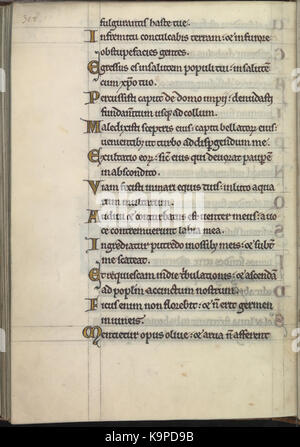 fulgurantis haste tue.
In fremitu conculcabis terram: & in furore
obstupefacies gentes.
Egressus es in salutem populi tui: in salutē
cum xp̄o tuo.
Percussisti caput de domo impij: denudasti
fundamtum usq; ad collum.
Maledixisti sceptris eius: capiti bellatoꝝ eius:
uenientibꝰ ut turbo ad dispgendum me.
Exultatio eoꝝ: sic eius qui deuorat paupem
in abscondito.
Viam fecisti in mari equis tuis: in luto aqua
rum multarum.
Audiui & conturbatus est uenter meus: a uo
ce contremuerunt labia mea.
Ingrediatur putredo in ossibꝫ meis: & subt̄
me scateat.
Et requiescam in die tribulationis: & ascendā
ad poplm accinctum nostrum.
Ficus enim non florebit: & n̄ erit germen
in uineis.
Mentietur opus oliue: & arua n̄ afferent
alamy
Image ID: K9PD9B
www.alamy.com